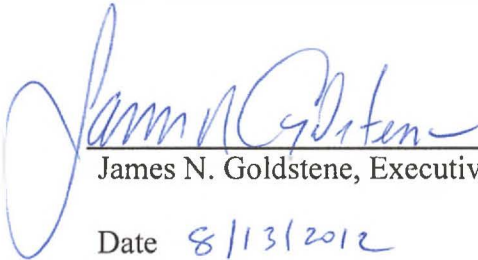 James N. Goldstene
James N. Goldstene, Executiv
Date 8/13/2012